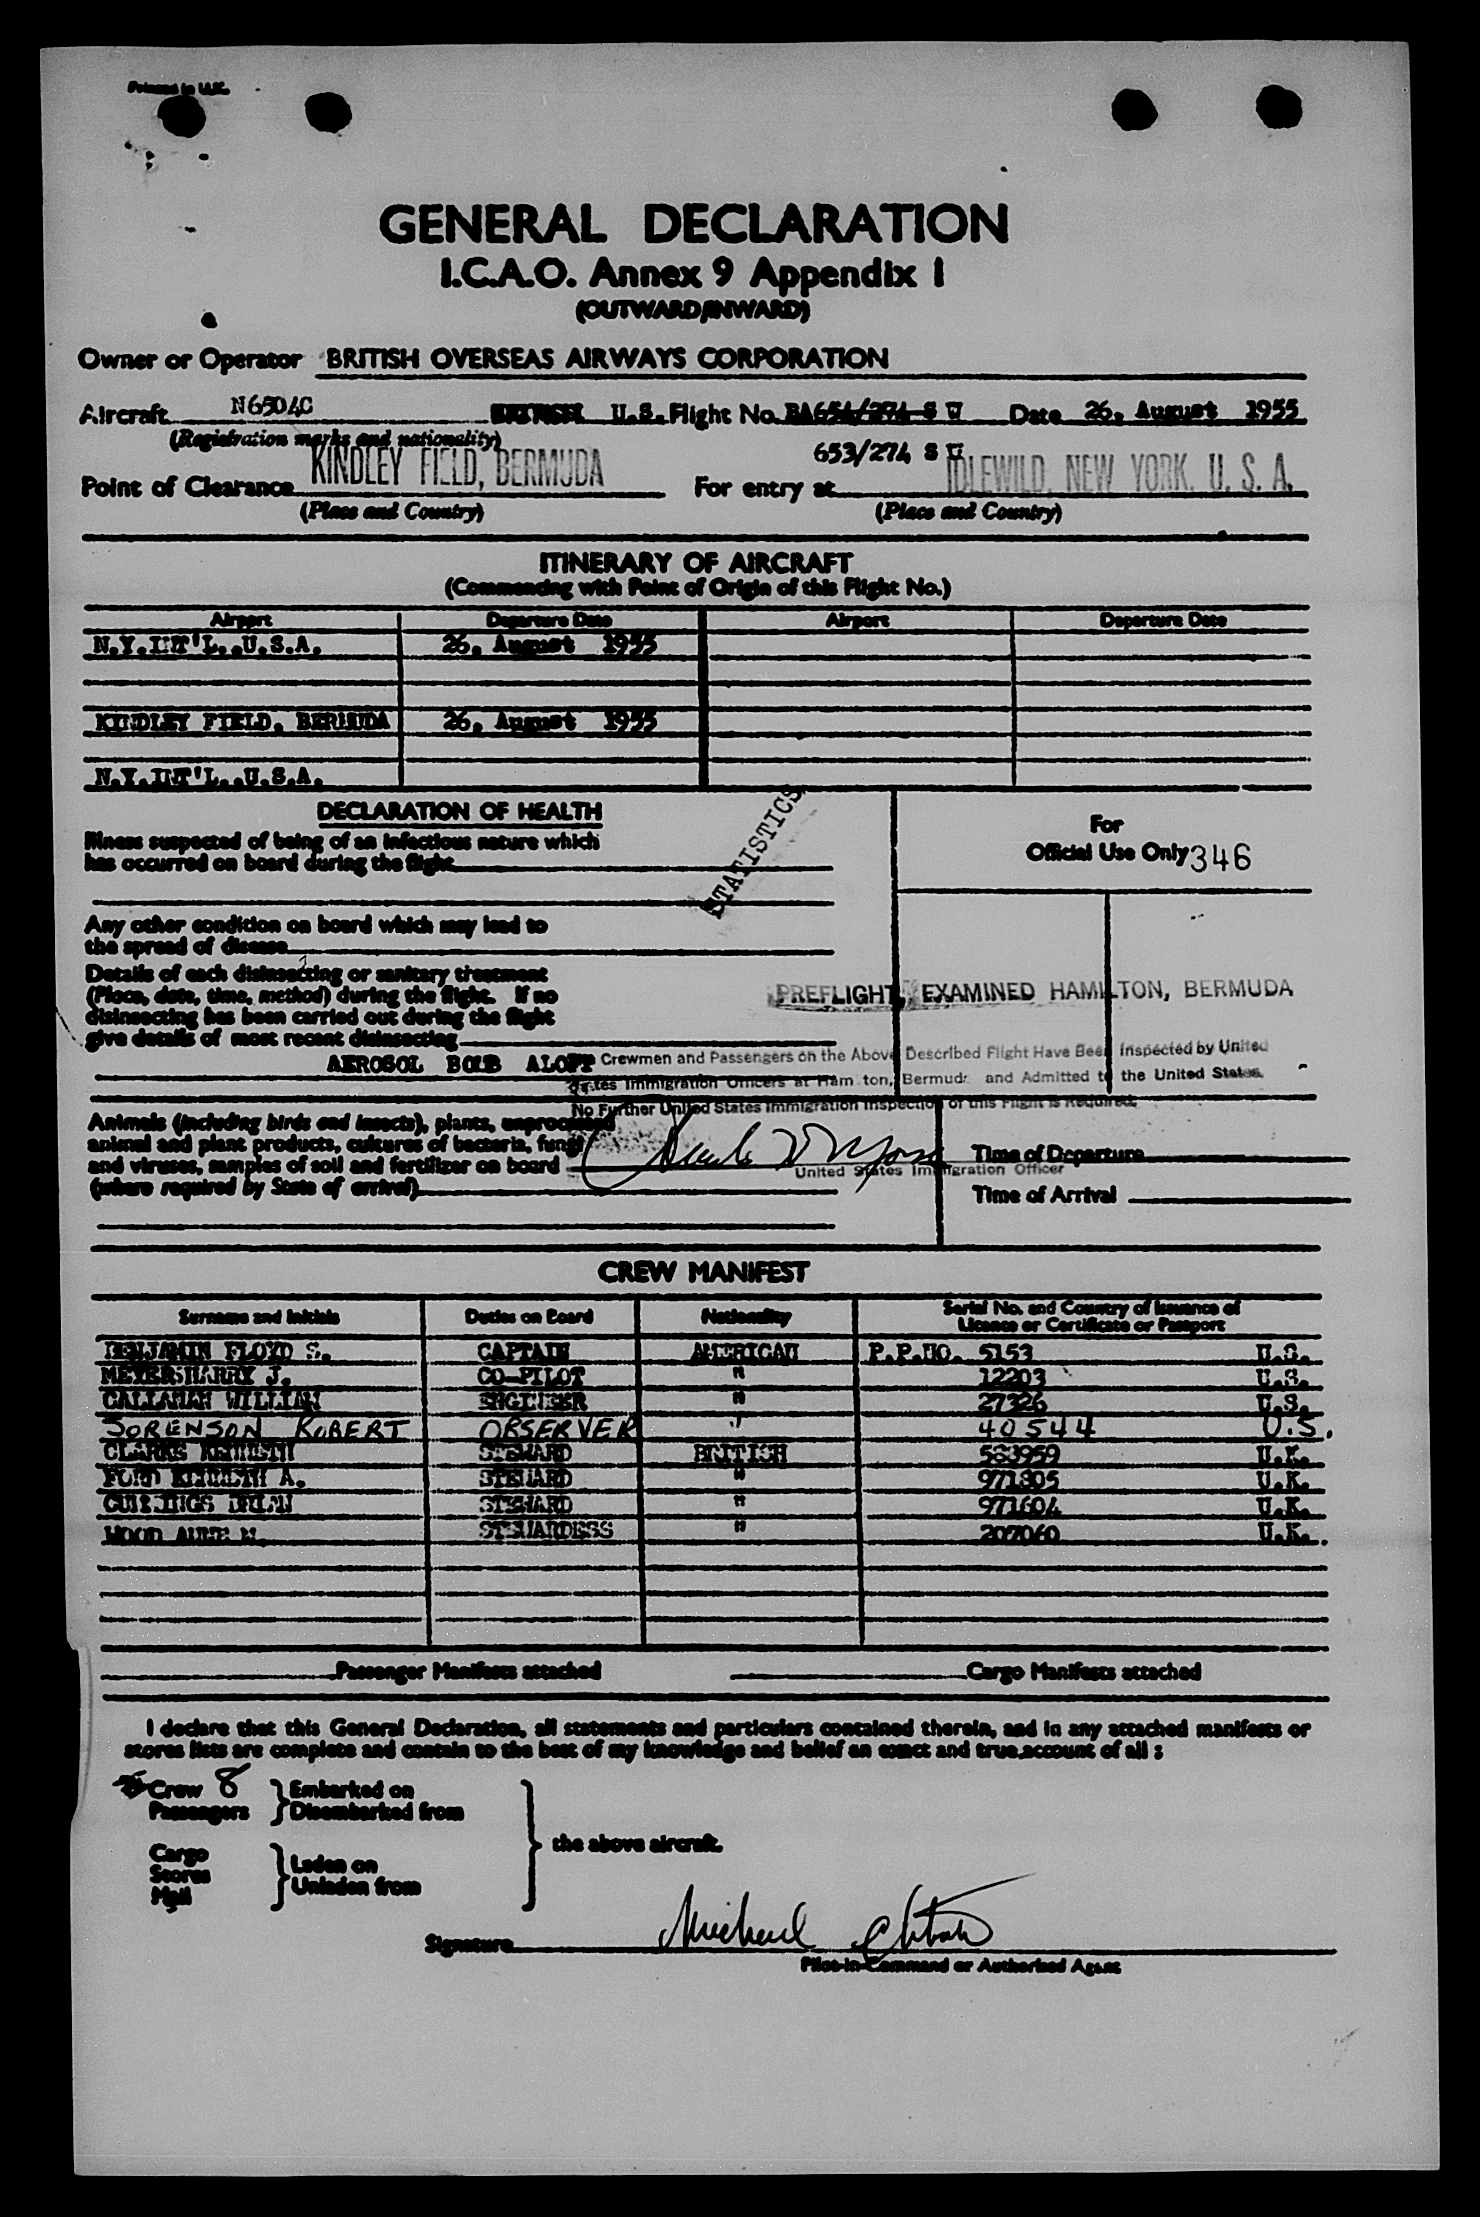 Printed in U.K.
GENERAL DECLARATION
I.C.A.O. Annex 9 Appendix 1
(OUTWARD/INWARD)
Owner or Operator BRITISH OVERSEAS AIRWAYS CORPORATION
Aircraft N6504C BRITISH U.S. Flight No. BA654/274 S W Date 26. August 1955
(Registration marks and nationality)
653/274 S W
Point of Clearance KINDLEY FIELD, BERMUDA For entry at IDLEWILD, NEW YORK. U. S. A.
(Place and Country) (Place and Country)
ITINERARY OF AIRCRAFT
(Commencing with Point of Origin of this Flight No.)
Airport Departure Date Airport Departure Date
N.Y.INT'L.,U.S.A. 26. August 1955
KINDLEY FIELD, BERMUDA 26. August 1955
N.Y.INT'L.,U.S.A.
DECLARATION OF HEALTH
Illness suspected of being of an infectious nature which
has occurred on board during the flight
STATISTICS
For
Official Use Only 346
Any other condition on board which may lead to
the spread of disease
Details of each disinsecting or sanitary treatment
(Place, date, time, method) during the flight. If no
disinsecting has been carried out during the flight
give details of most recent disinsecting
PREFLIGHT, EXAMINED HAMILTON, BERMUDA
AEROSOL BOMB ALOFT
Crewmen and Passengers on the Above Described Flight Have Been Inspected by United
States Immigration Officers at Hamilton, Bermuda and Admitted to the United States.
No Further United States Immigration Inspection of this Flight is Required.
Animals (including birds and insects), plants, unprocessed
animal and plant products, cultures of bacteria, fungi
and viruses, samples of soil and fertilizer on board
(where required by State of arrival)
United States Immigration Officer
Time of Departure
Time of Arrival
CREW MANIFEST
Surname and Initials Duties on Board Nationality Serial No. and Country of Issuance of
Licence or Certificate or Passport
BENJAMIN FLOYD S. CAPTAIN AMERICAN P.P.NO. 5153 U.S.
MEYER HARRY J. CO-PILOT " 12203 U.S.
CALLAHAN WILLIAM ENGINEER " 27326 U.S.
SORENSON ROBERT OBSERVER " 40544 U.S.
CLARKE KENNETH STEWARD BRITISH 583959 U.K.
FORD KENNETH A. STEWARD " 971805 U.K.
CUMMINGS BRIAN STEWARD " 971604 U.K.
WOOD ANNE M. STEWARDESS " 207060 U.K.
Passenger Manifests attached Cargo Manifests attached
I declare that this General Declaration, all statements and particulars contained therein, and in any attached manifests or
stores lists are complete and contain to the best of my knowledge and belief an exact and true account of all :
Crew 8 Embarked on
Passengers Disembarked from
the above aircraft.
Cargo
Stores Laden on
Mail Unladen from
Signature Michael
Pilot-in-Command or Authorised Agent